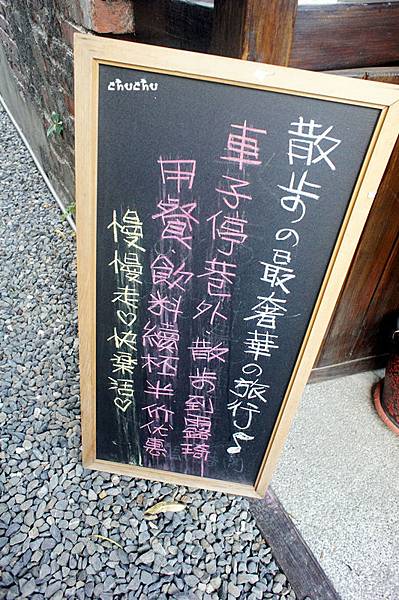 chuchu
散步の最奢華の旅行♪
車子停巷外、散步到露琦
用餐、飲料續杯半价优惠
慢慢走♡快樂活♡